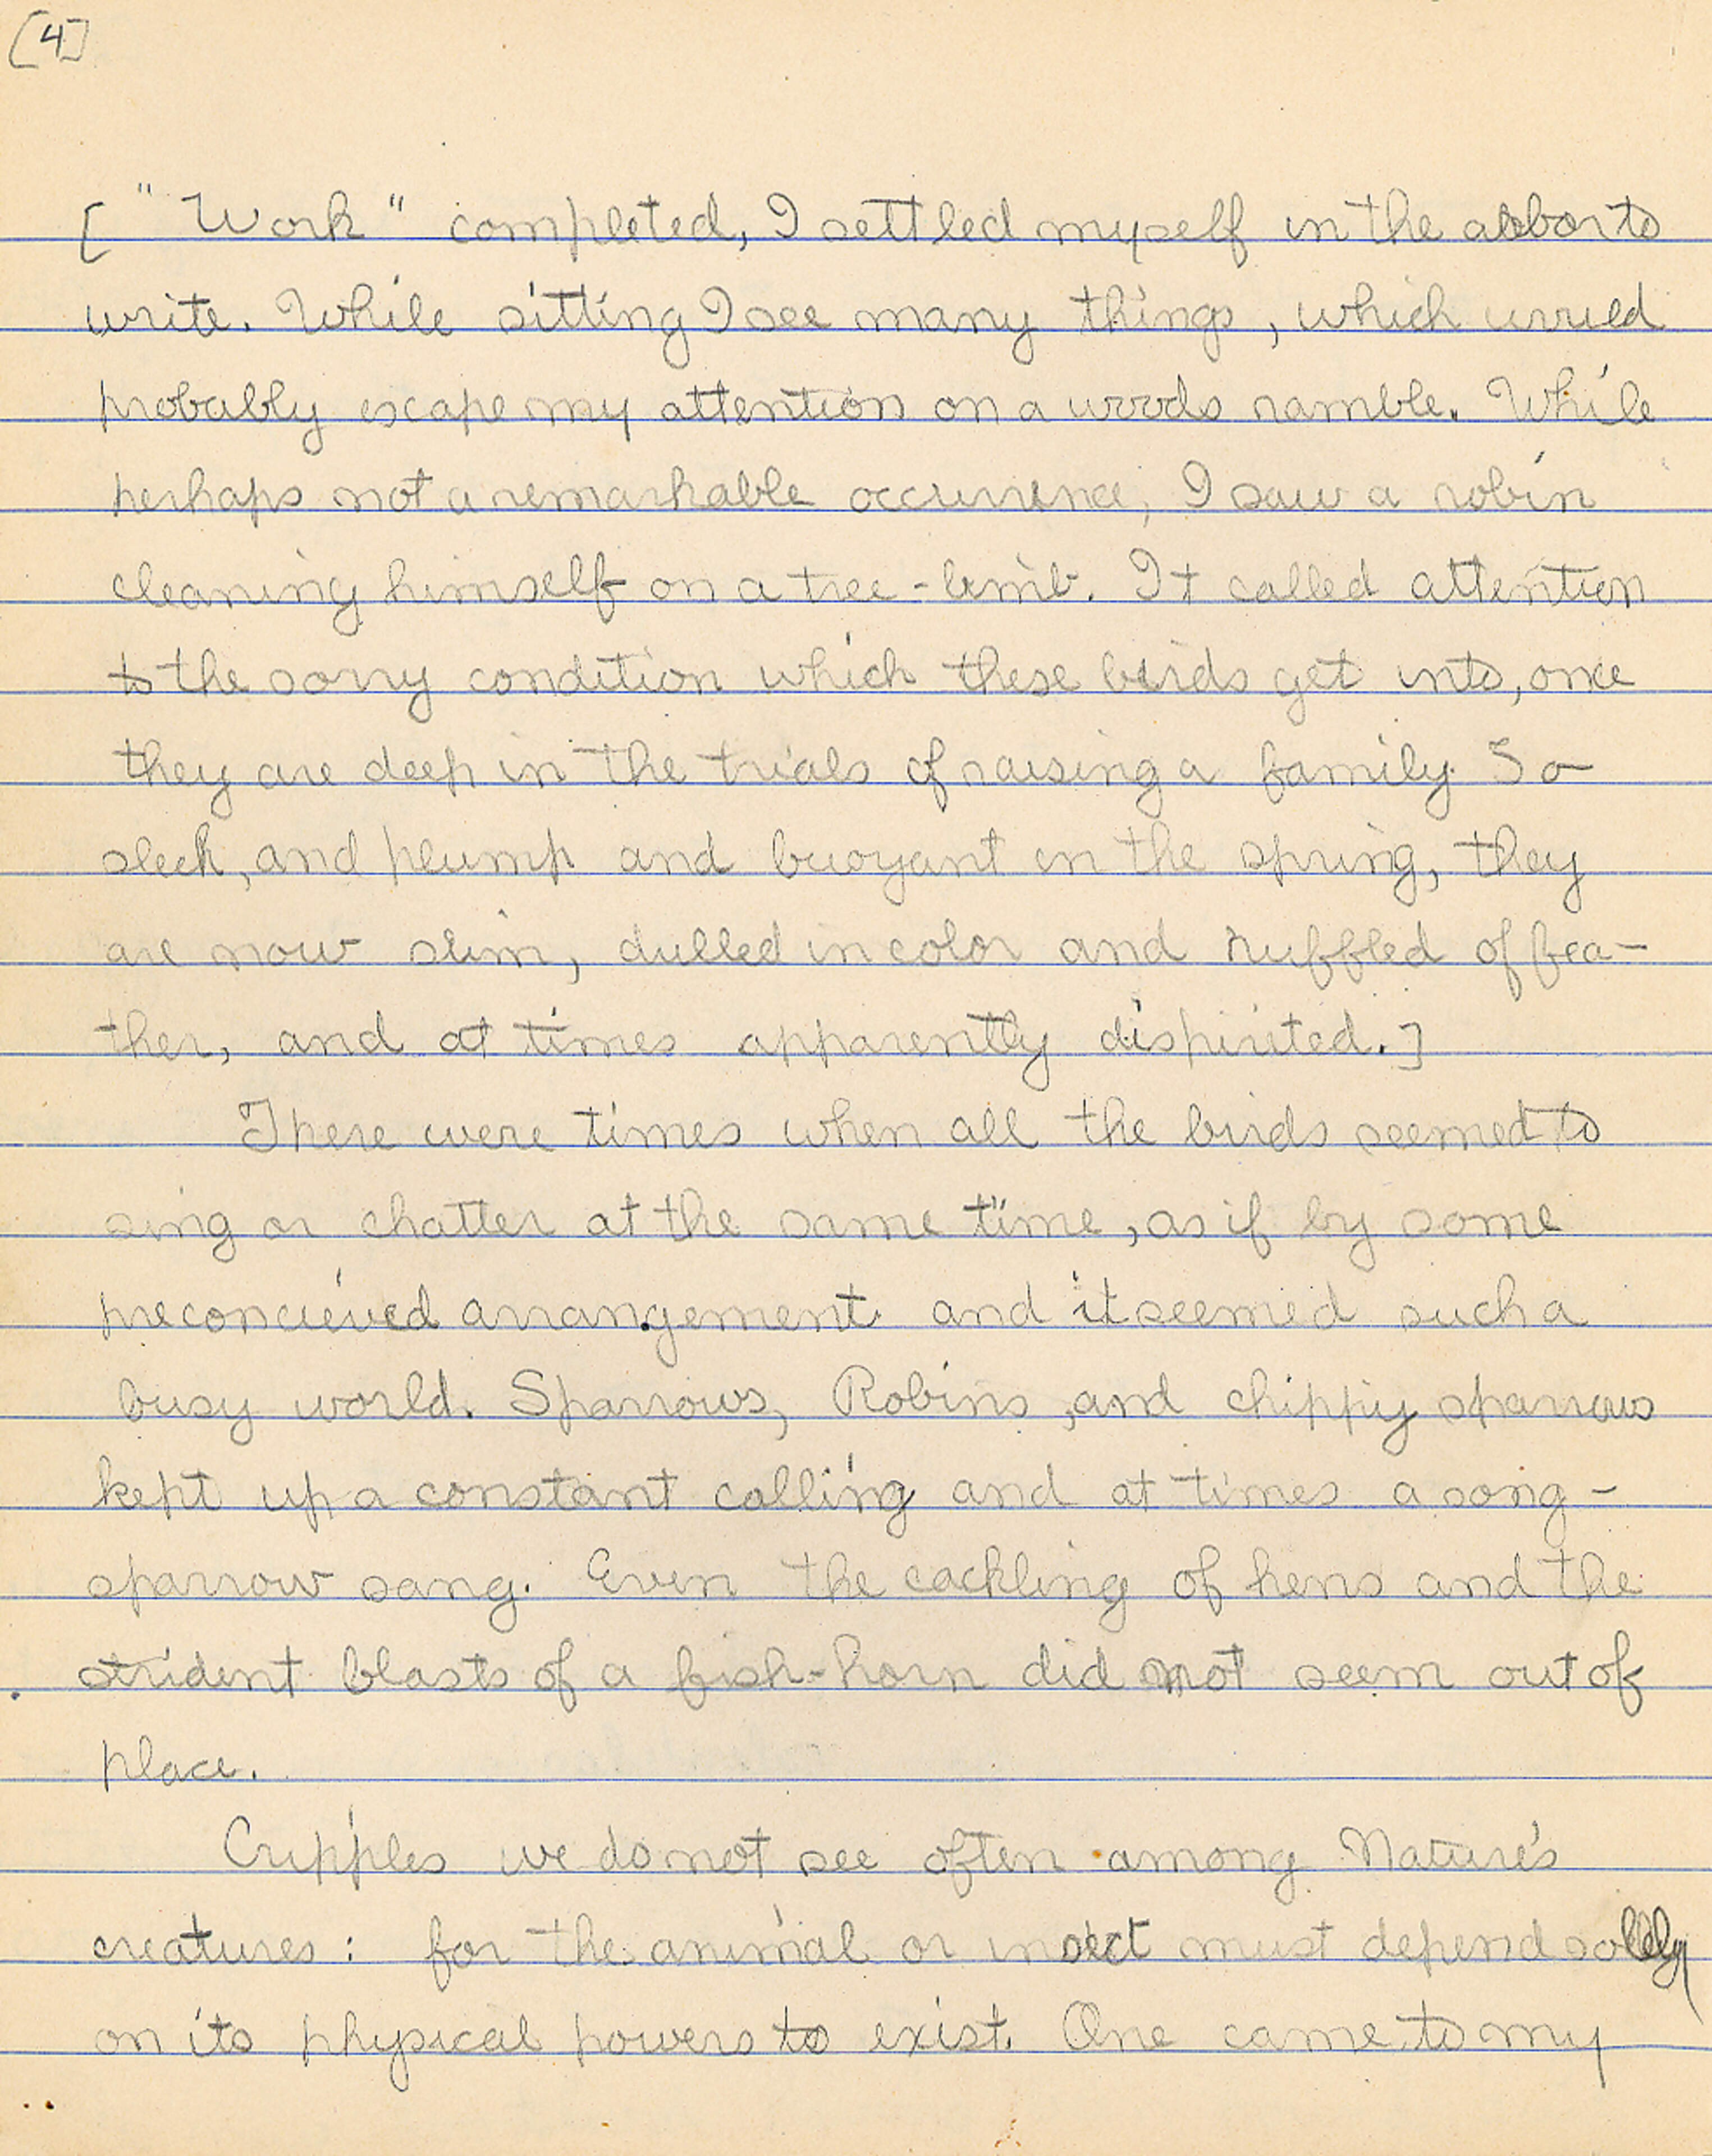 [4]
[ "Work" completed, I settled myself in the arbor to
write. While sitting I see many things, which would
probably escape my attention on a woods ramble. While
perhaps not a remarkable occurrence, I saw a robin
cleaning himself on a tree-limb. It called attention
to the sorry condition which these birds get into, once
they are deep in the trials of raising a family. So
sleek, and plump and buoyant in the spring, they
are now slim, dulled in color and ruffled of fea-
ther, and at times apparently dispirited.]
There were times when all the birds seemed to
sing or chatter at the same time, as if by some
preconcieved arrangement. and it seemed such a
busy world. Sparrows, Robins, and chippy sparrows
kept up a constant calling and at times a song-
sparrow sang. Even the cackling of hens and the
strident blasts of a fish-horn did not seem out of
place.
Cripples we do not see often among Nature's
creatures: for the animal or insect must depend solely
on its physical powers to exist. One came to my